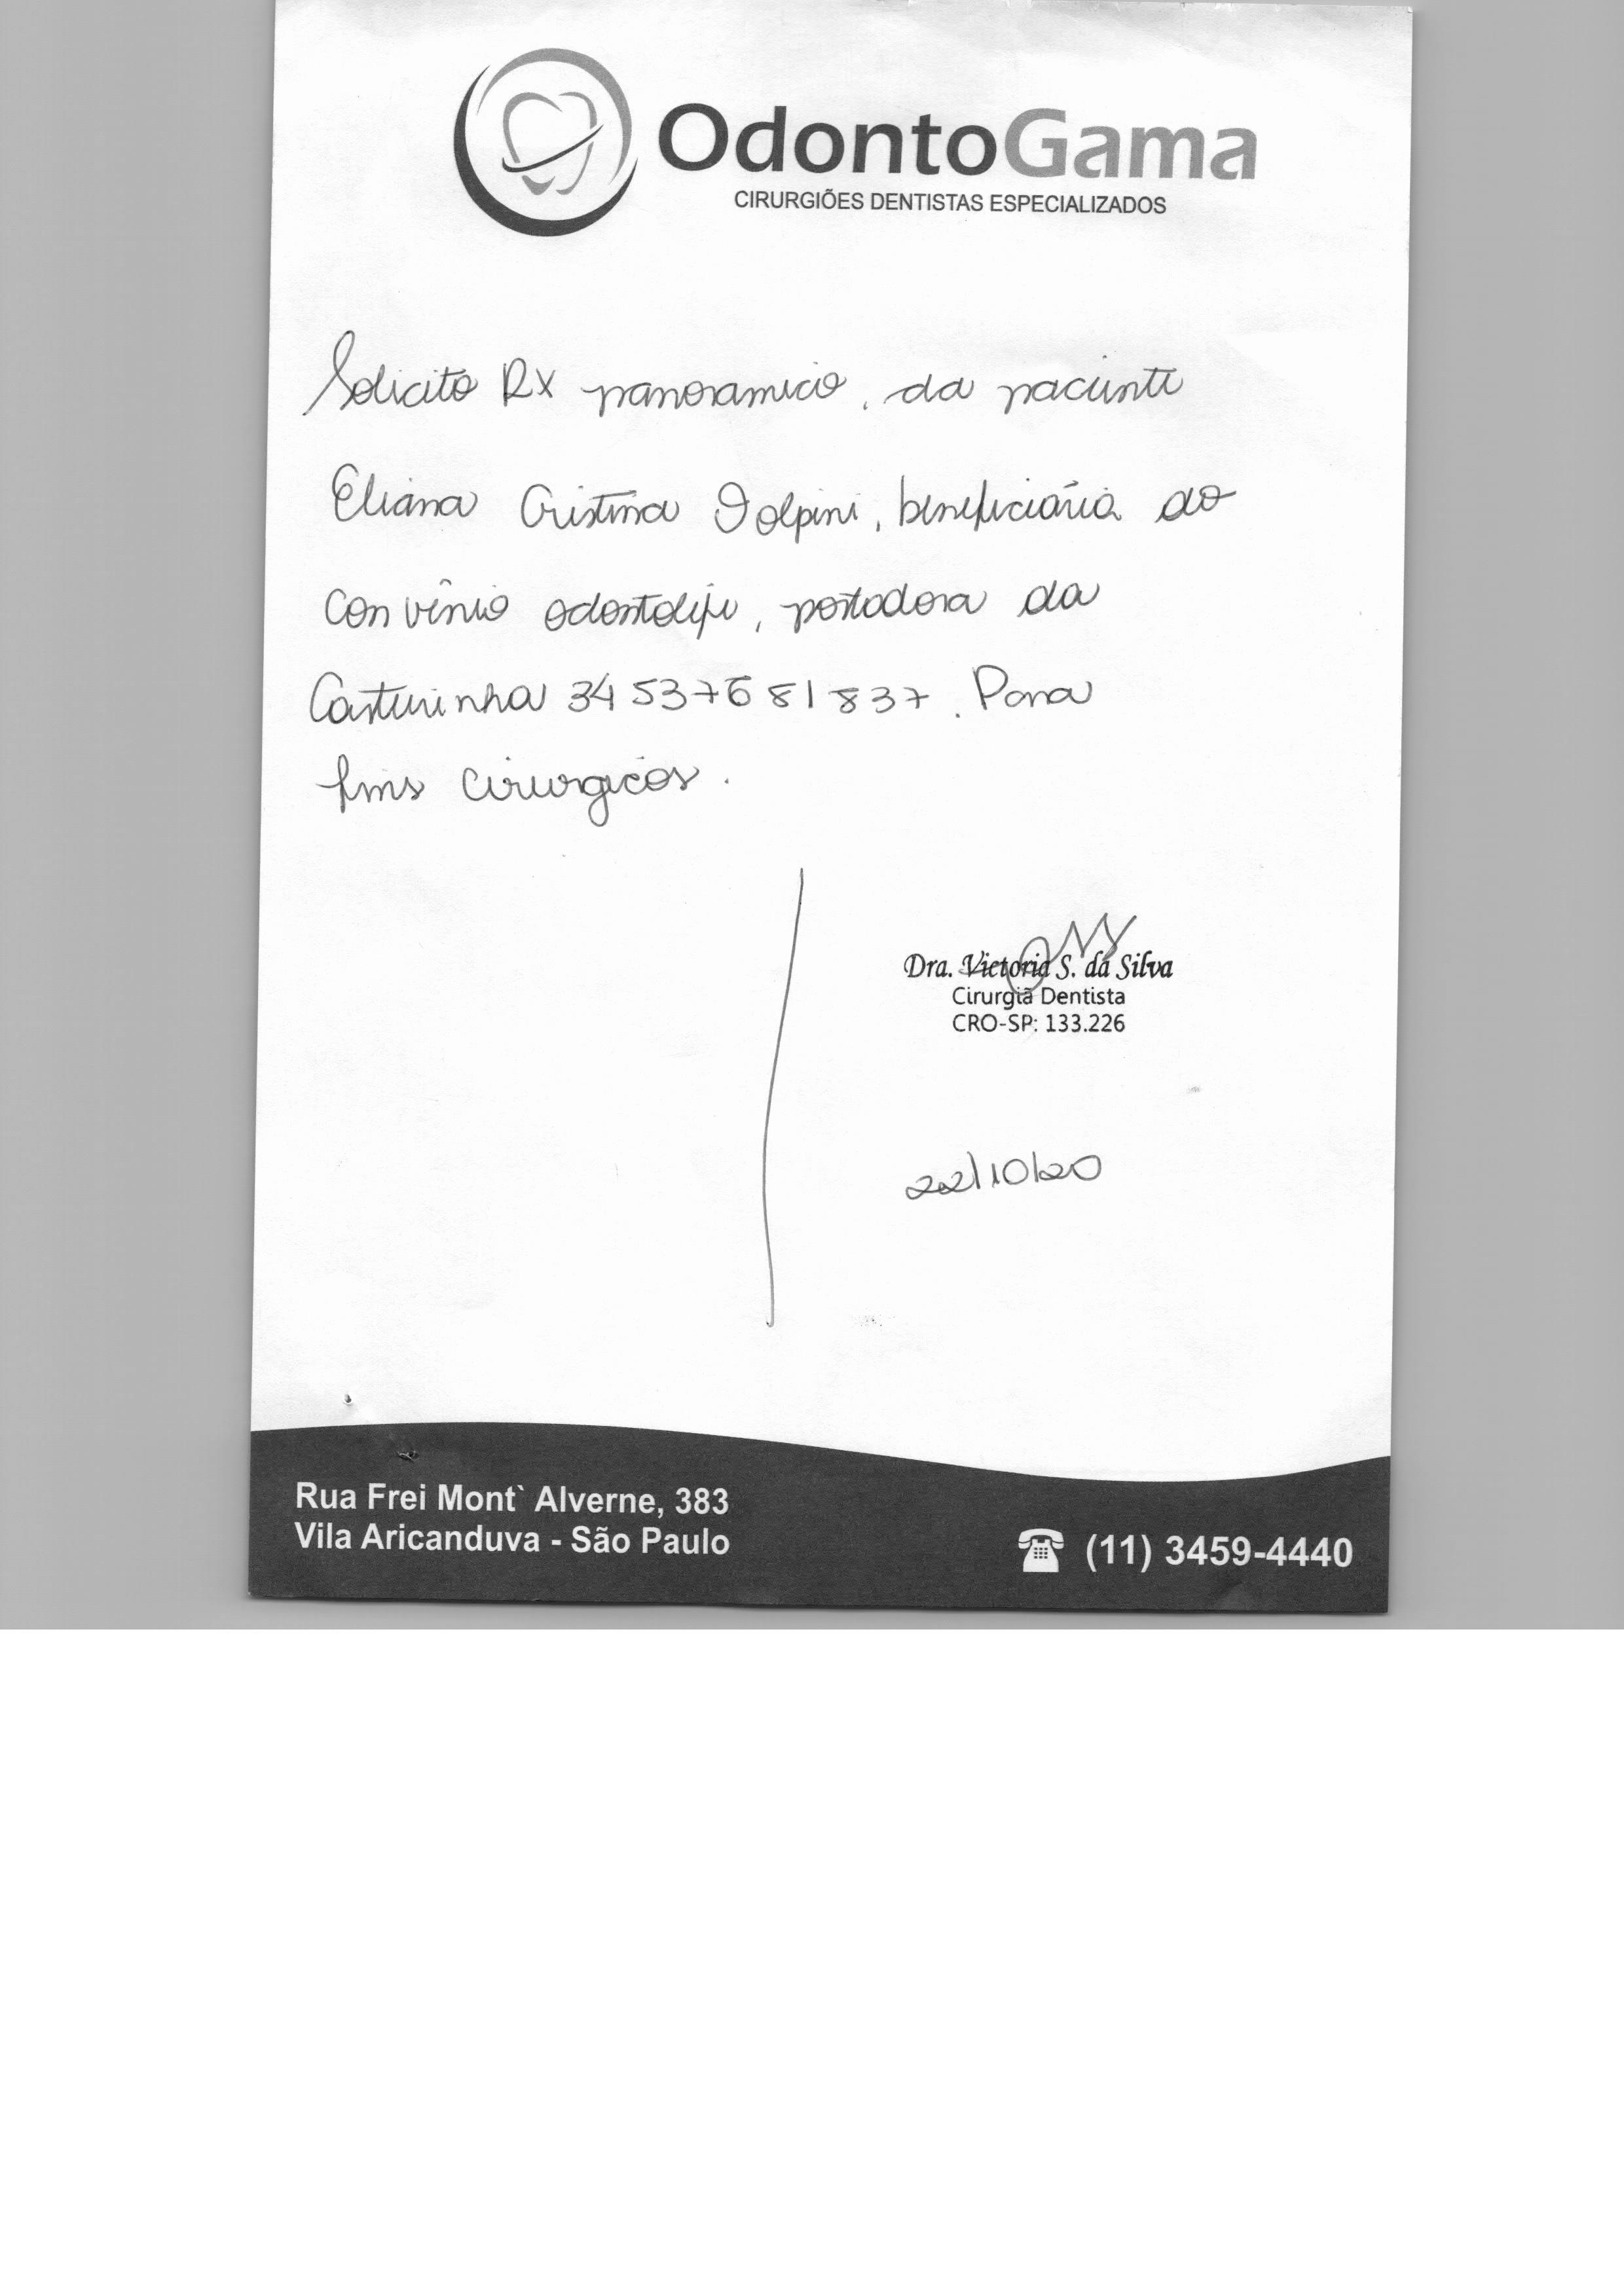 OdontoGama
CIRURGIÕES DENTISTAS ESPECIALIZADOS
Solicito RX panoramico, da paciente
Eliana Cristina Volpini, beneficiária do
convênio odontolife, portadora da
Carteirinha 34537681837. Para
fins cirurgicos.
Dra. Victoria S. da Silva
Cirurgiã Dentista
CRO-SP: 133.226
22/10/20
Rua Frei Mont` Alverne, 383
Vila Aricanduva - São Paulo
(11) 3459-4440